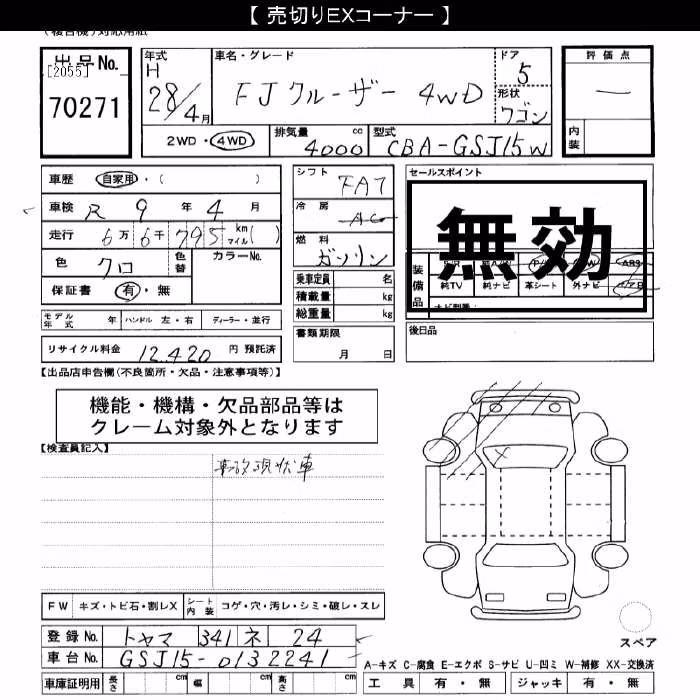 【 売切りEXコーナー 】
出品No.
[2055]
70271
年式
H
28/4月
車名・グレード
FJ クルーザー 4WD
ドア
5
形状
ワゴン
評価点
―
内装
2WD・4WD
排気量
4000 cc
型式
CBA-GSJ15W
車歴 自家用・( )
車検 R 9 年 4 月
走行 6万 6千 795 km マイル( )
色 クロ 色替 カラーNo.
保証書 有・無
シフト
FAT
冷房
AC
燃料
ガソリン
乗車定員 名
積載量 kg
総重量 kg
書類期限
月 日
セールスポイント
無効
装備品
純TV 純ナビ 革シート 外ナビ エアB
ナビ型番:
後日品
モデル年式 年 ハンドル 左・右 ディーラー・並行
リサイクル料金 12,420 円 預託済
【出品店申告欄(不良箇所・欠品・注意事項等)】
機能・機構・欠品部品等は
クレーム対象外となります
【検査員記入】
事故現状車
FW キズ・トビ石・割レX シート内装 コゲ・穴・汚レ・シミ・破レ・スレ
登録No. トヤマ 341 ネ 24
車台No. GSJ15-0132241
車庫証明用 長さ cm 幅 cm 高さ cm
スペア
A-キズ C-腐食 E-エクボ S-サビ U-凹ミ W-補修 XX-交換済
工具 有・無 ジャッキ 有・無